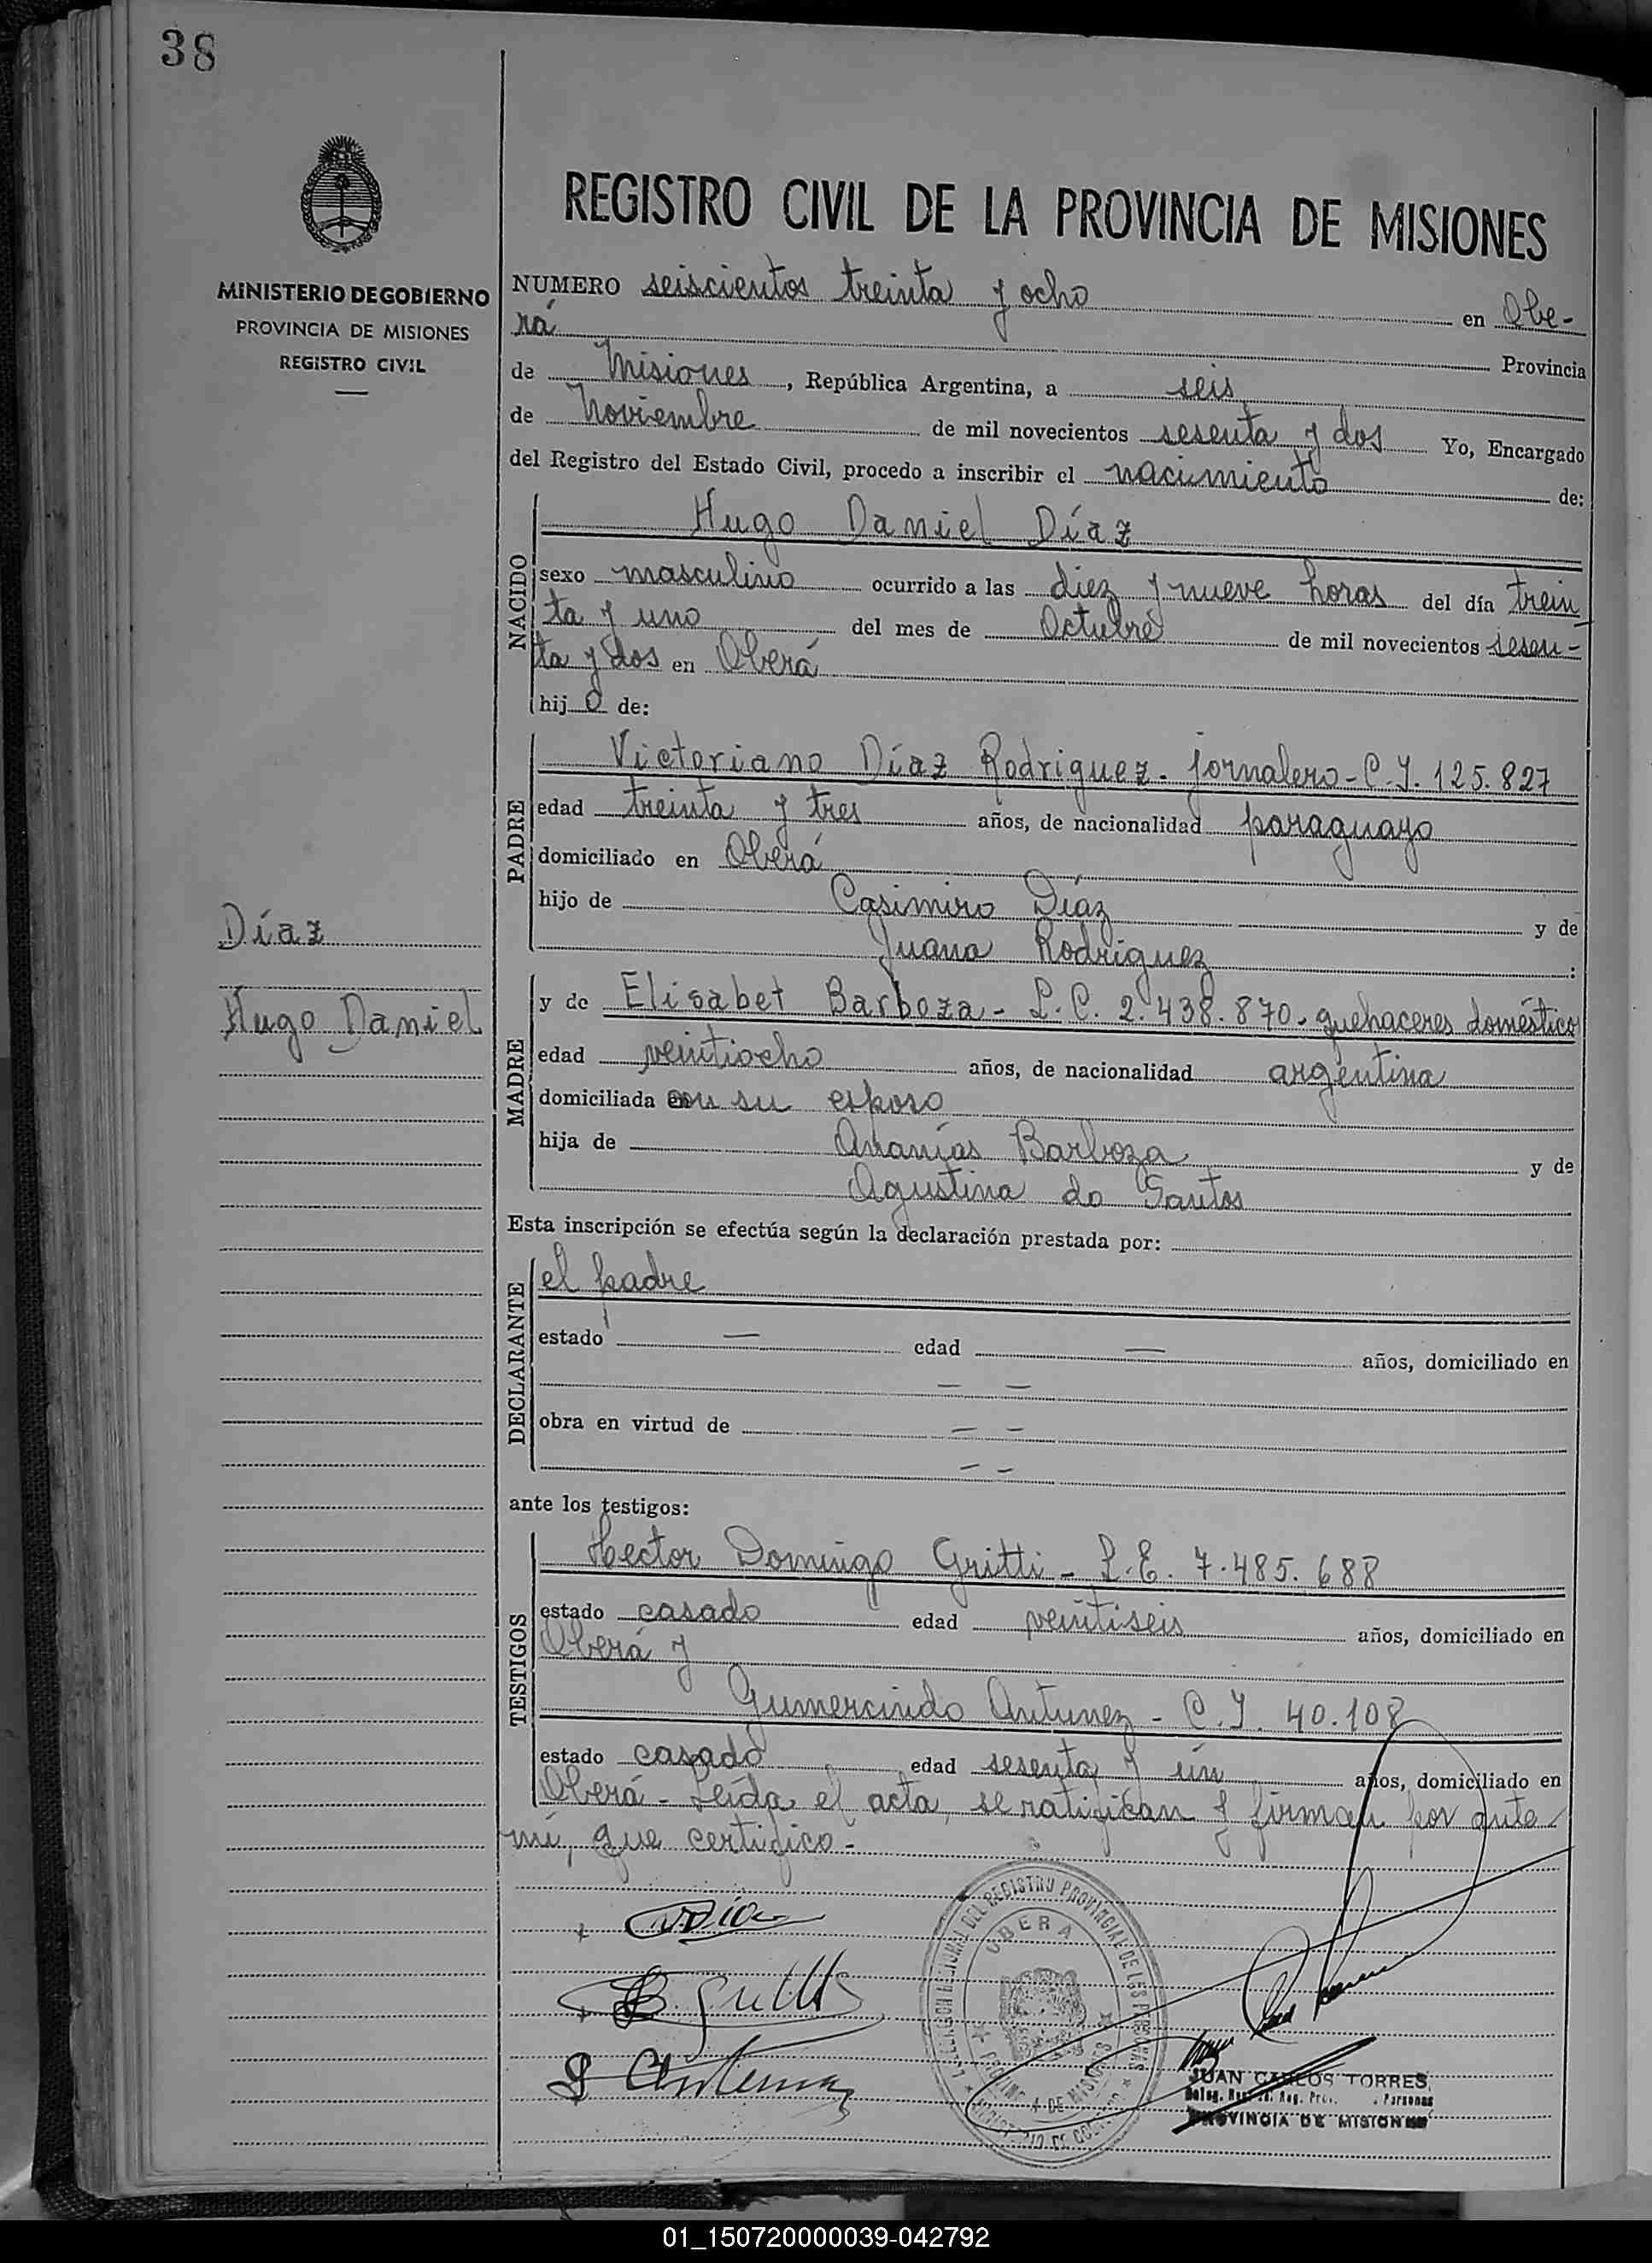 38
MINISTERIO DE GOBIERNO
PROVINCIA DE MISIONES
REGISTRO CIVIL
Díaz
Hugo Daniel
REGISTRO CIVIL DE LA PROVINCIA DE MISIONES
NUMERO seiscientos treinta y ocho en Obe-
rá Provincia
de Misiones, República Argentina, a seis
de Noviembre de mil novecientos sesenta y dos Yo, Encargado
del Registro del Estado Civil, procedo a inscribir el nacimiento de:
NACIDO
Hugo Daniel Díaz
sexo masculino ocurrido a las diez y nueve horas del día trein
ta y uno del mes de Octubre de mil novecientos sesen-
ta y dos en Oberá
hijo de:
PADRE
Victoriano Díaz Rodriguez - jornalero - C.I. 125.827
edad treinta y tres años, de nacionalidad paraguayo
domiciliado en Oberá
hijo de Casimiro Díaz y de
Juana Rodriguez :
MADRE
y de Elisabet Barboza - L.C. 2.438.870 - quehaceres domésticos
edad veintiocho años, de nacionalidad argentina
domiciliada con su esposo
hija de Ananías Barboza y de
Agustina do Santos
Esta inscripción se efectúa según la declaración prestada por:
DECLARANTE
el padre
estado — edad — años, domiciliado en
— —
obra en virtud de — —
— —
ante los testigos:
TESTIGOS
Hector Domingo Gritti - L.E. 7.485.688
estado casado edad veintiseis años, domiciliado en
Oberá y
Gumercindo Antunez - C.I. 40.108
estado casado edad sesenta y un años, domiciliado en
Oberá - Leída el acta, se ratifican y firman por ante
mí, que certifico -
DEL REGISTRO PROVINCIAL DE LAS PERSONAS
OBERA
PROVINCIA DE MISIONES
JUAN CARLOS TORRES
PROVINCIA DE MISIONES
01_150720000039-042792